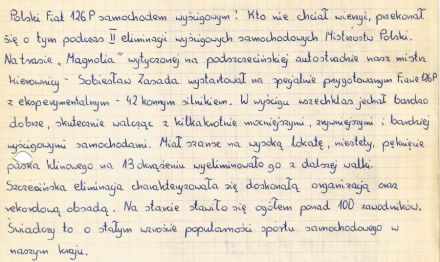 Polski Fiat 126P samochodem wyścigowym! Kto nie chciał wierzyć, przekonał
się o tym podczas II eliminacji wyścigowych samochodowych Mistrzostw Polski.
Na trasie "Magnolia" wytyczonej na podszczecińskiej autostradzie nasz mistrz
kierownicy - Sobiesław Zasada wystartował na specjalnie przygotowanym Fiacie 126P
z eksperymentalnym - 42 konnym silnikiem. W wyścigu wozech klas jechał bardzo
dobrze, skutecznie walcząc z kilkakrotnie mocniejszymi, zrywniejszymi i bardziej
wyścigowymi samochodami. Miał szanse na wysoką lokatę, niestety, pęknięcie
paska klinowego na 13 okrążeniu wyeliminowało go z dalszej walki.
Szczecińska eliminacja charakteryzowała się doskonałą organizacją oraz
rekordową obsadą. Na starcie stawiło się ogółem ponad 100 zawodników.
Świadczy to o stałym wzroście popularności sportu samochodowego w
naszym kraju.